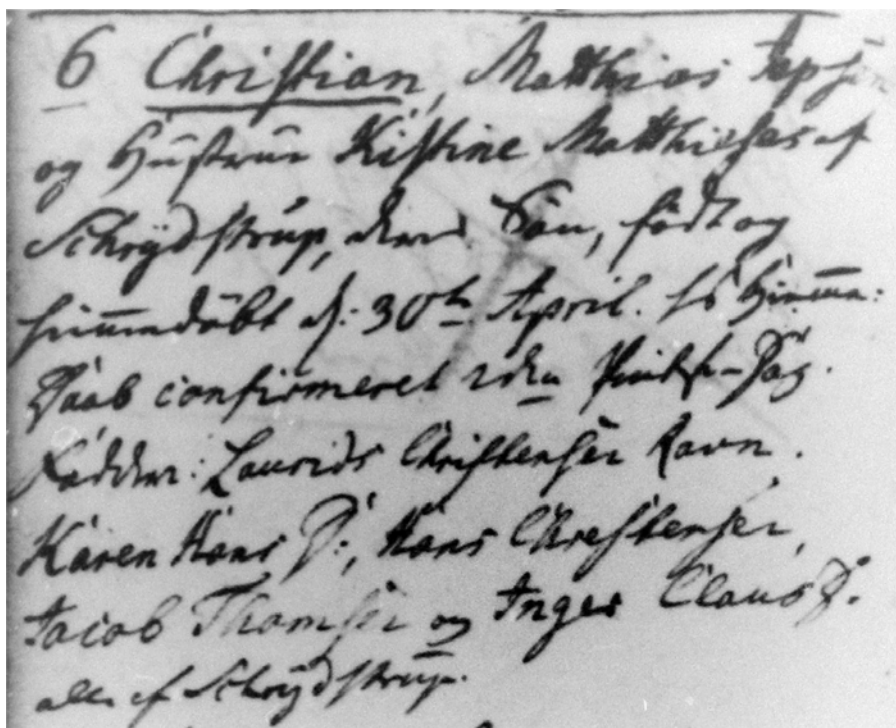 6 Christian, Matthias Jepsen
og Hustrue Kistine Matthieses af
Schrydstrup, deres Sön, födt og
hiemmedöbt d: 30te April. is Hiemme:
Daab confirmeret 2den Pintse-Dag.
Fadder: Laurids Christensen Ravn.
Karen Hans D:, Hans Christensen,
Jacob Thomsen og Inger Claus D.
alle af Schrydstrup.